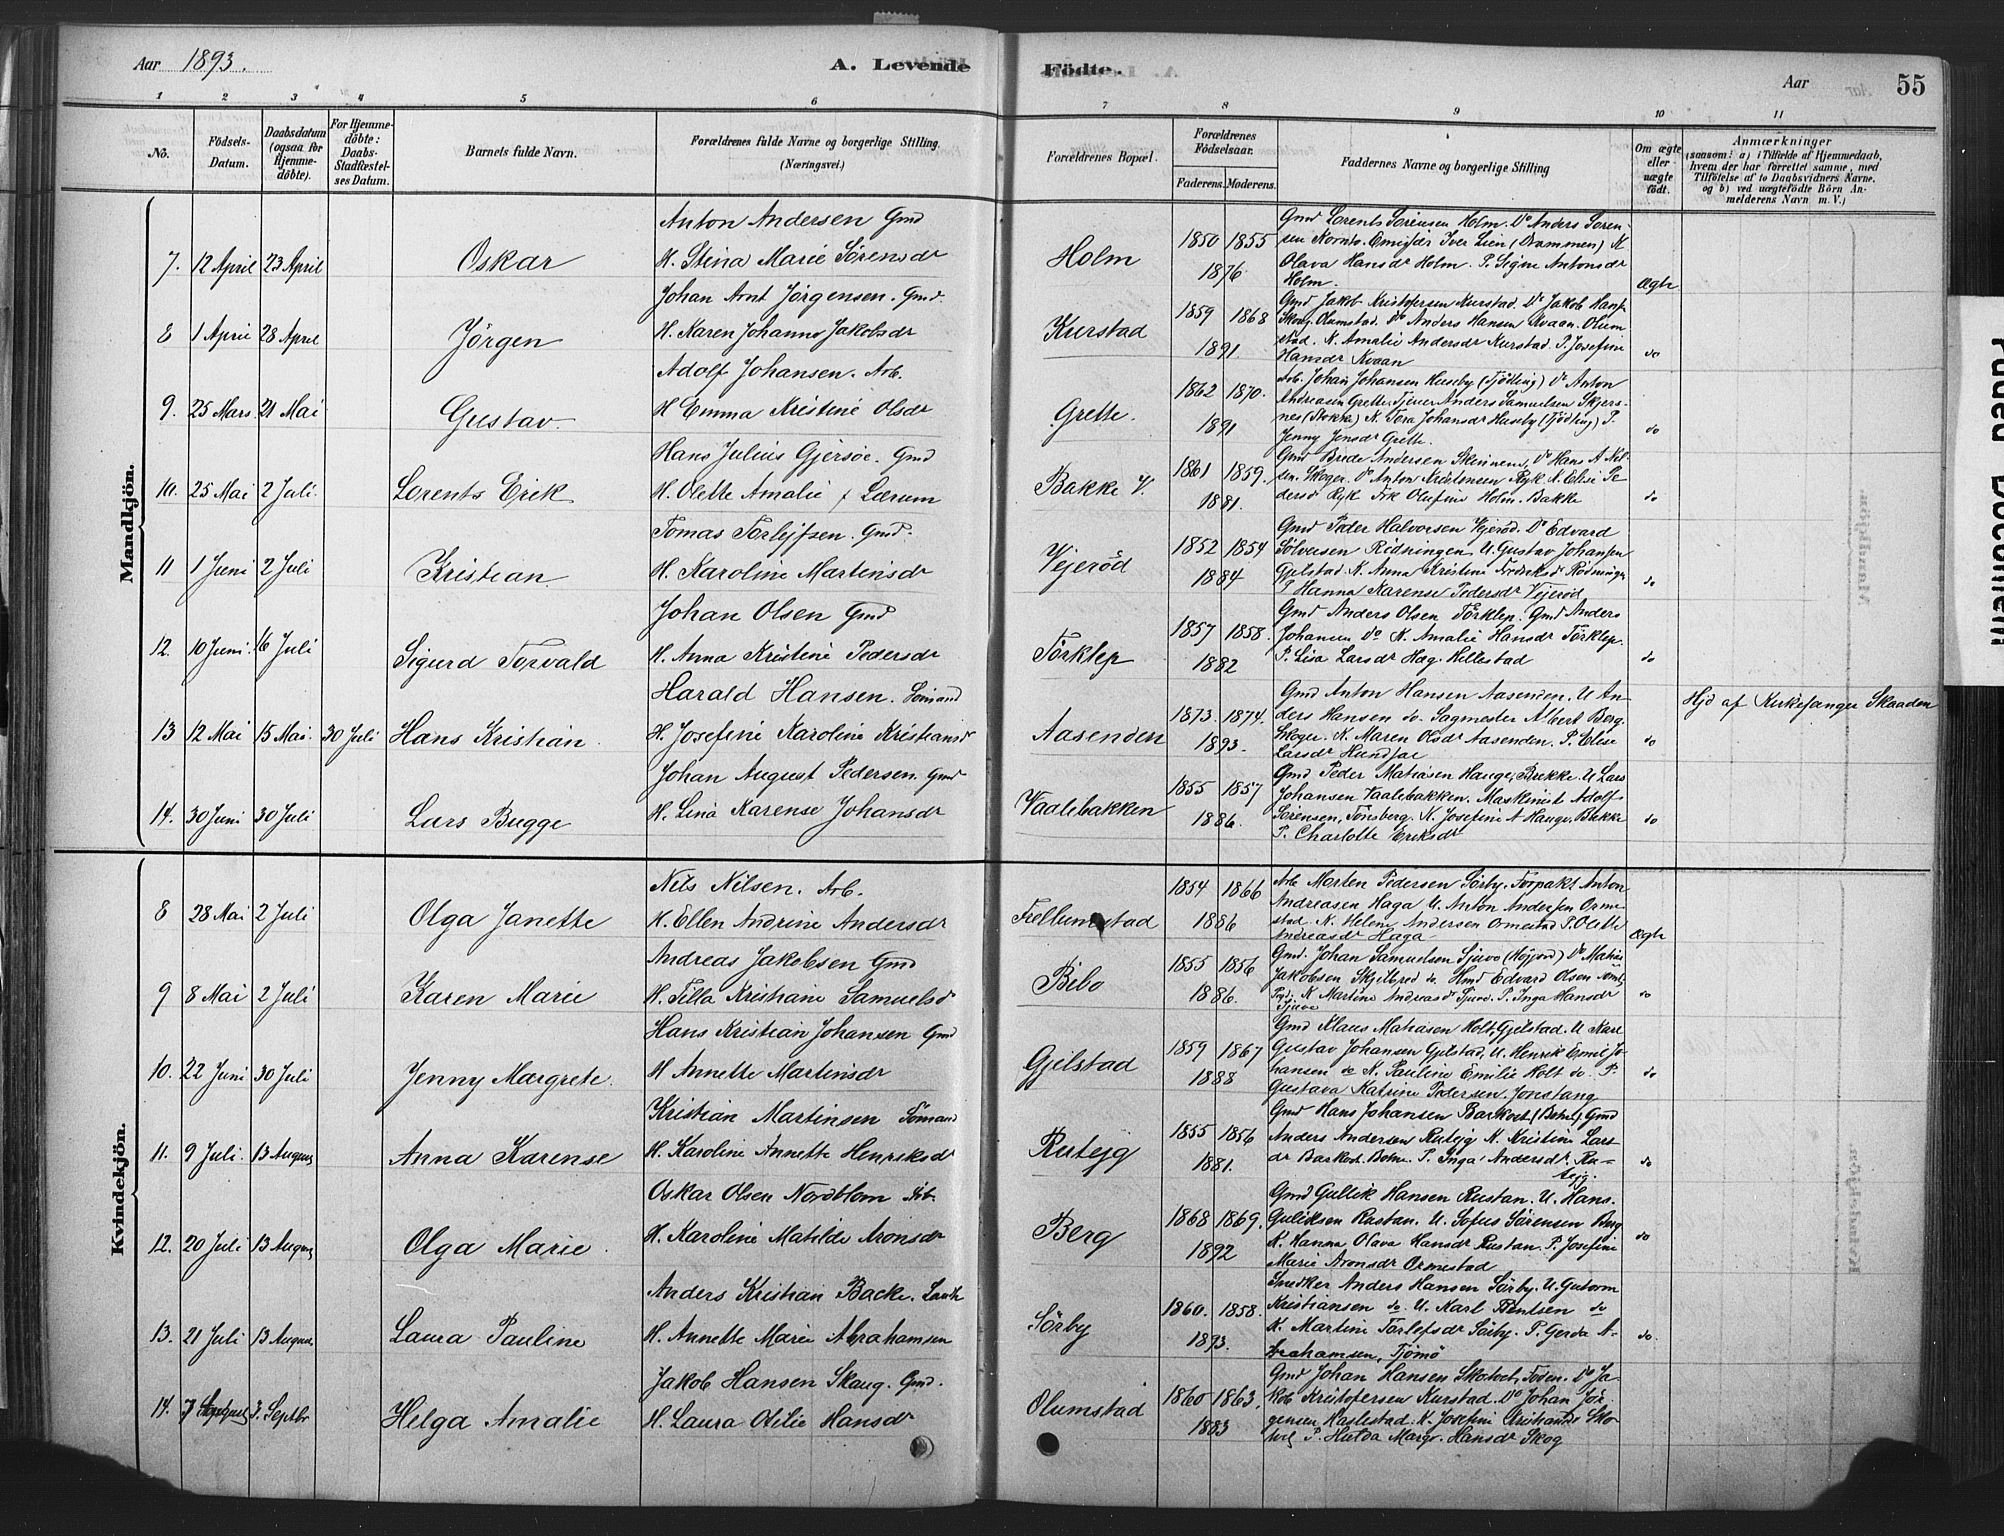 Aar 1893. A. Levende Födte. Aar 55
1 2 3 4 5 6 7 8 9 10 11
No. Födsels-Datum. Daabsdatum (ogsaa for Hjemme-döbte). For Hjemme-döbte: Daabs-Stadfæstel-ses Datum. Barnets fulde Navn. Forældrenes fulde Navne og borgerlige Stilling. (Næringsvei.) Forældrenes Bopæl. Forældrenes Födselsaar. Faderens. Moderens. Faddernes Navne og borgerlige Stilling Om ægte eller uægte födt. Anmærkninger (saasom: a) i Tilfælde af Hjemmedaab, hvem der har forrettet samme, med Tilföielse af to Daabsvidners Navne. og b) ved uægtefödte Börn An-melderens Navn m. V.)
Mandkjön.
7. 12 April 23 April Oskar
Anton Andersen Gmd
H. Stina Marie Sörensdr
Holm 1850 1855 1876
Gmd Lorents Sörensen Holm. Do Anders Sören-
sen Iver Lien (Drammen) K
Olava Hansdr Holm. P. Signe Antonsdr
Holm. Ægte
8 1 April 28 April Jörgen
Johan Arnt Jörgensen. Gmd.
H. Karen Johanne Jakobsdr
Kurstad 1859 1868 1891
Gmd Jakob Kristofersen Kurstad. Do Jakob Hansen
Skoug. Olumstad. Do Anders Hansen Kvaan. Olum
stad. K. Amalie Andersdr Kurstad. P. Josefine
Hansdr Kvaan do
9. 25 Mars 21 Mai Gustav
Adolf Johansen. Arb.
H Emma Kristine Olsdr
Grette. 1862 1870. 1891
Arb. Johan Johansen Huseby (Tjödling) Do Anton
Andreasen Grette. Tjener Anders Samuelsen Skjers-
nes (Stokke) K. Tora Johansdr Huseby (Tjödling) P.
Jenny Jensdr Grette. do
10. 25 Mai 2 Juli. Lorents Erik
Hans Julius Gjersöe. Gmd
H. Olette Amalie f Lærum
Bakke V. 1861 1859. 1881.
Gmd Brede Andersen Skinnen, Do Hans A Nil-
sen. Skoger. Do Anton Kristensen Ryk K. Elise Pe
dersdr Ryk Frk Olufine Holm. Bakke do
11 1 Juni 2 Juli Kristian
Tomas Torlejfsen. Gmd.
H. Karoline Martinsdr
Vejeröd 1852 1854 1884
Gmd Peder Halvorsen Vejeröd. Do Edvard
Sölvesen Rödningen U. Gustav Johansen
Gjelstad. K. Anna Kristine Rödninge
P. Hanna Karense Pedersdr Vejeröd do
12. 10 Juni. 16 Juli Sigurd Torvald
Johan Olsen Gmd
H. Anna Kristine Pedersdr
Törklep 1857 1858. 1882
Gmd Anders Olsen Törklep. Gmd Anders
Johansen do K. Amalie Hansdr Törklep.
P. Lisa Larsdr Hag. Hillestad do
13 12 Mai 15 Mai. 30 Juli Hans Kristian.
Harald Hansen. Sömand
H. Josefine Karoline Kristiansdr
Aasenden 1873. 1874. 1893.
Gmd Anton Hansen Aasenden. U An-
ders Hansen do. Sagmester Albert Berg.
Skoger. K. Maren Olsdr Aasenden. P. Elise
Larsdr do
Hjd af Kirkesanger Skaaden
14. 30 Juni 30 Juli Lars Bugge
Johan August Pedersen. Gmd
H. Lina Karense Johansdr
Vaalebakken 1855 1857 1886.
Gmd Peder Matiasen Hauge, Brekke. U Lars
Johansen Vaalebakken. Maskinist Adolf
Sörensen, Tönsberg. K. Josefine A Hauge. Brekke
P. Charlotte Eriksdr do
Kvindekjön.
8 28 Mai 2 Juli Olga Janette
Nils Nilsen. Arb.
H. Ellen Andrine Andersdr
1854 1866 1886
Arb Morten Pedersen Sörby. Forpakt Anton
Andreasen Haga U. Anton Andersen Orme
stad. K. Helene Andersen Ormestad P. Olette
Andreasdr Haga Ægte
9 8 Mai 2 Juli Karen Marie
Andreas Jakobsen Gmd
H. Tilla Kristiane Samuelsdr
Bibo 1855 1856 1886.
Gmd. Johan Samuelsen Sjuve (Höjjord) Do Matias
Jakobsen do. Hmd Edvard Olsen
K Martine Andreasdr Sjuve. P. Inga Hansdr
do
10. 22 Juni 30 Juli Jenny Margrete.
Hans Kristian Johansen Gmd
H Annette Martinsdr
Gjelstad 1859 1867 1888
Gmd Klaus Matiasen Holt, Gjelstad. U Karl
Gustav Johansen Gjelstad, U. Henrik Emil Jo-
hansen do K. Pauline Emilie Holt do. P.
Gustava Katrine Pedersen. Jonstang do
11. 9 Juli. 13 August Anna Karense
Kristian Martinsen Sömand
H. Karoline Annette Henriksdr
Rutejg 1855 1856 1881.
Gmd Hans Johansen Barkost (Botne) Gmd
Anders Andersen Rutejg K. Kristine Lars-
dr Barkost. Botne. P. Inga Andersdr Ru-
tejg. do
12. 20 Juli 13 August Olga Marie.
Oskar Olsen Nordblom Arb.
H. Karoline Matilde Aronsdr
Berg 1868 1869. 1892
Gmd Gullik Hansen Rustan. U. Hans.
Guliksen Rastan. U. Sofus Sörensen Berg
K. Hanna Olava Hansdr Rustan. P. Josefine
Marie Aronsdr Ormestad do
13. 21 Juli 13 August Laura Pauline
Anders Kristian Backe. Landh
H. Annette Marie Abrahamsen
Sörby 1860. 1858. 1893.
Snedker Anders Hansen Sörby. U. Gutorm
Kristiansen do. U. Karl Frentsen do
K. Martine Torlefsdr Sörby. P. Gerda A-
brahamsen, Tjömö do.
14. 3. Septbr Helga Amalie
Jakob Hansen Skaug. Gmd.
H. Laura Otilie Hansdr
Olumstad 1860 1863. 1883
Gmd Johan Hansen Do Ja-
kob Kristofersen Kurstad. Do Johan Jör
gensen Haslestad. K. Josefine
P. Hulda Margr. Hansdr Skog